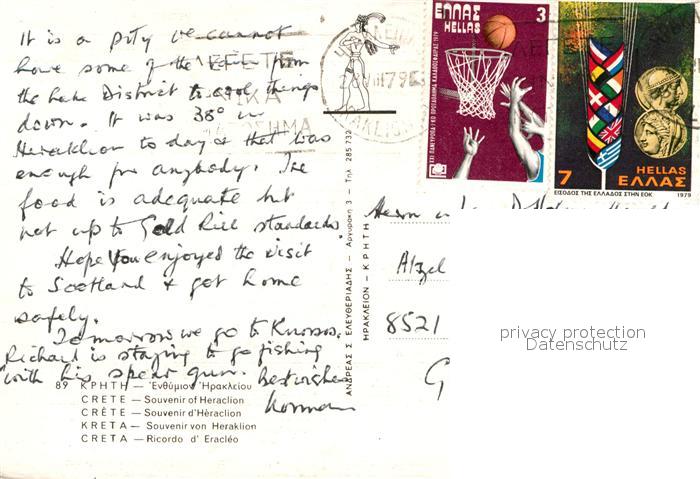 It is a pity we cannot
have some of the rain from
the Lake District to cool things
down. It was 38° in
Heraklion to day & that was
enough for anybody. The
food is adequate but
not up to Gold Rill standards.
Hope you enjoyed the visit
to Scotland & got home
safely.
Tomorrow we go to Knossos.
Richard is staying to go fishing
with his spear gun. Best wishes
Norman
89 ΚΡΗΤΗ — Ἐνθύμιον Ἡρακλείου
CRETE — Souvenir of Heraclion
CRÈTE — Souvenir d'Hèraclion
KRETA — Souvenir von Heraklion
CRETA — Ricordo d' Eracléo
ΑΝΔΡΕΑΣ Σ. ΕΛΕΥΘΕΡΙΑΔΗΣ — Αργυράκη 3 — Τηλ. 285.732
ΗΡΑΚΛΕΙΟΝ - ΚΡΗΤΗ
ΕΛΛΑΣ 3
HELLAS
7 HELLAS
ΕΛΛΑΣ
ΕΙΣΟΔΟΣ ΤΗΣ ΕΛΛΑΔΟΣ ΣΤΗΝ ΕΟΚ. 1979
Herrn
8521
privacy protection
Datenschutz